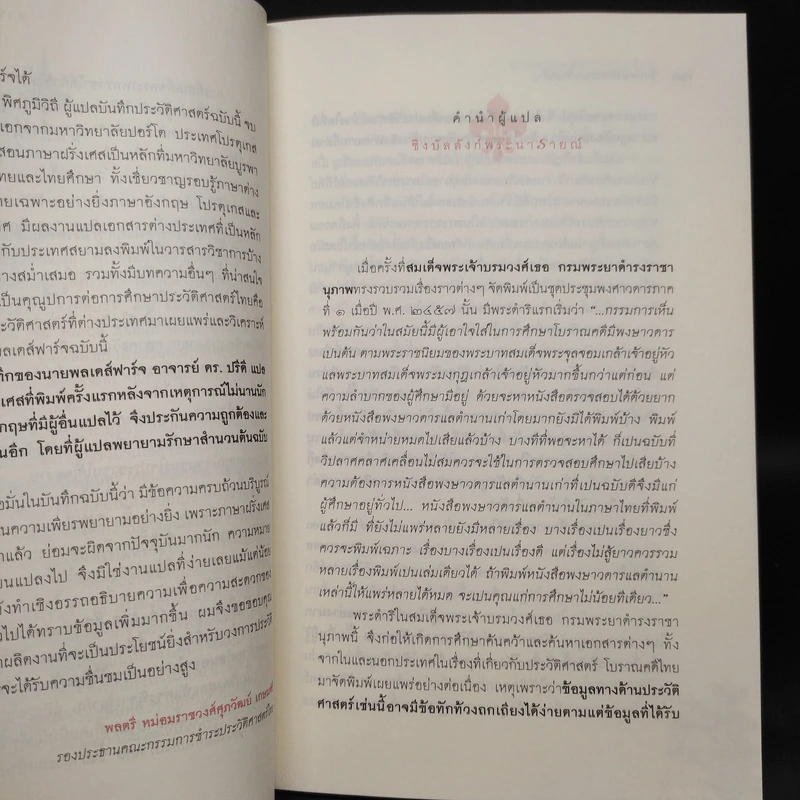 ร์จได้
พิศภูมิวิถี ผู้แปลบันทึกประวัติศาสตร์ฉบับนี้ จบ
เอกจากมหาวิทยาลัยปอร์โต ประเทศโปรตุเกส
สอนภาษาฝรั่งเศสเป็นหลักที่มหาวิทยาลัยบูรพา
ทยและไทยศึกษา ทั้งเชี่ยวชาญรอบรู้ภาษาต่าง
ยเฉพาะอย่างยิ่งภาษาอังกฤษ โปรตุเกสและ
ศ มีผลงานแปลเอกสารต่างประเทศที่เป็นหลัก
กับประเทศสยามลงพิมพ์ในวารสารวิชาการบ้าง
างสม่ำเสมอ รวมทั้งมีบทความอื่นๆ ที่น่าสนใจ
เป็นคุณูปการต่อการศึกษาประวัติศาสตร์ไทยคือ
ะวัติศาสตร์ที่ต่างประเทศมาเผยแพร่และวิเคราะห์
พลเดส์ฟาร์จฉบับนี้
ทึกของนายพลเดส์ฟาร์จ อาจารย์ ดร. ปรีดี แปล
เศสที่พิมพ์ครั้งแรกหลังจากเหตุการณ์ไม่นานนัก
กฤษที่มีผู้อื่นแปลไว้ จึงประกันความถูกต้องและ
นอีก โดยที่ผู้แปลพยายามรักษาสำนวนต้นฉบับ
อมั่นในบันทึกฉบับนี้ว่า มีข้อความครบถ้วนบริบูรณ์
นความเพียรพยายามอย่างยิ่ง เพราะภาษาฝรั่งเศส
าแล้ว ย่อมจะผิดจากปัจจุบันมากนัก ความหมาย
วนแปลงไป จึงมิใช่งานแปลที่ง่ายเลยแม้แต่น้อย
ังทำเชิงอรรถอธิบายความเพื่อความสะดวกของ
วไปได้ทราบข้อมูลเพิ่มมากขึ้น ผมจึงขอขอบคุณ
าผลิตงานที่จะเป็นประโยชน์ยิ่งสำหรับวงการประวัติ
จะได้รับความชื่นชมเป็นอย่างสูง
พลตรี หม่อมราชวงศ์ศุภวัฒย์
รองประธานคณะกรรมการชำระประวัติศาสตร์ไทย
คำนำผู้แปล
ชิงบัลลังก์พระนารายณ์
เมื่อครั้งที่สมเด็จพระเจ้าบรมวงศ์เธอ กรมพระยาดำรงราชา
นุภาพทรงรวบรวมเรื่องราวต่างๆ จัดพิมพ์เป็นชุดประชุมพงศาวดารภาค
ที่ ๑ เมื่อปี พ.ศ. ๒๔๕๗ นั้น มีพระดำริแรกเริ่มว่า “...กรรมการเห็น
พร้อมกันว่าในสมัยนี้มีผู้เอาใจใส่ในการศึกษาโบราณคดีมีพงษาวดาร
เปนต้น ตามพระราชนิยมของพระบาทสมเด็จพระจุลจอมเกล้าเจ้าอยู่หัว
แลพระบาทสมเด็จพระมงกุฎเกล้าเจ้าอยู่หัวมากขึ้นกว่าแต่ก่อน แต่
ความลำบากของผู้ศึกษามีอยู่ ด้วยจะหาหนังสือตรวจสอบได้ด้วยยาก
ด้วยหนังสือพงษาวดารแลตำนานเก่าโดยมากยังมิได้พิมพ์บ้าง พิมพ์
แล้วแต่จำหน่ายหมดไปเสียแล้วบ้าง บางทีที่พอจะหาได้ ก็เปนฉบับที่
วิปลาศคลาศเคลื่อนไม่สมควรจะใช้ในการตรวจสอบศึกษาไปเสียบ้าง
ความต้องการหนังสือพงษาวดารแลตำนานเก่าที่เปนฉบับดีจึงมีแก่
ผู้ศึกษาอยู่ทั่วไป... หนังสือพงษาวดารแลตำนานในภาษาไทยที่พิมพ์
แล้วก็มี ที่ยังไม่แพร่หลายยังมีหลายเรื่อง บางเรื่องเปนเรื่องยาวซึ่ง
ควรจะพิมพ์เฉพาะ เรื่องบางเรื่องเปนเรื่องดี แต่เรื่องไม่สู้ยาวควรรวม
หลายเรื่องพิมพ์เปนเล่มเดียวได้ ถ้าพิมพ์หนังสือพงษาวดารแลตำนาน
เหล่านี้ให้แพร่หลายได้หมด จะเปนคุณแก่การศึกษาไม่น้อยทีเดียว...”
พระดำริในสมเด็จพระเจ้าบรมวงศ์เธอ กรมพระยาดำรงราชา
นุภาพนี้ จึงก่อให้เกิดการศึกษาค้นคว้าและค้นหาเอกสารต่างๆ ทั้ง
จากในและนอกประเทศในเรื่องที่เกี่ยวกับประวัติศาสตร์ โบราณคดีไทย
มาจัดพิมพ์เผยแพร่อย่างต่อเนื่อง เหตุเพราะว่าข้อมูลทางด้านประวัติ
ศาสตร์เช่นนี้อาจมีข้อทักท้วงถกเถียงได้ง่ายตามแต่ข้อมูลที่ได้รับ